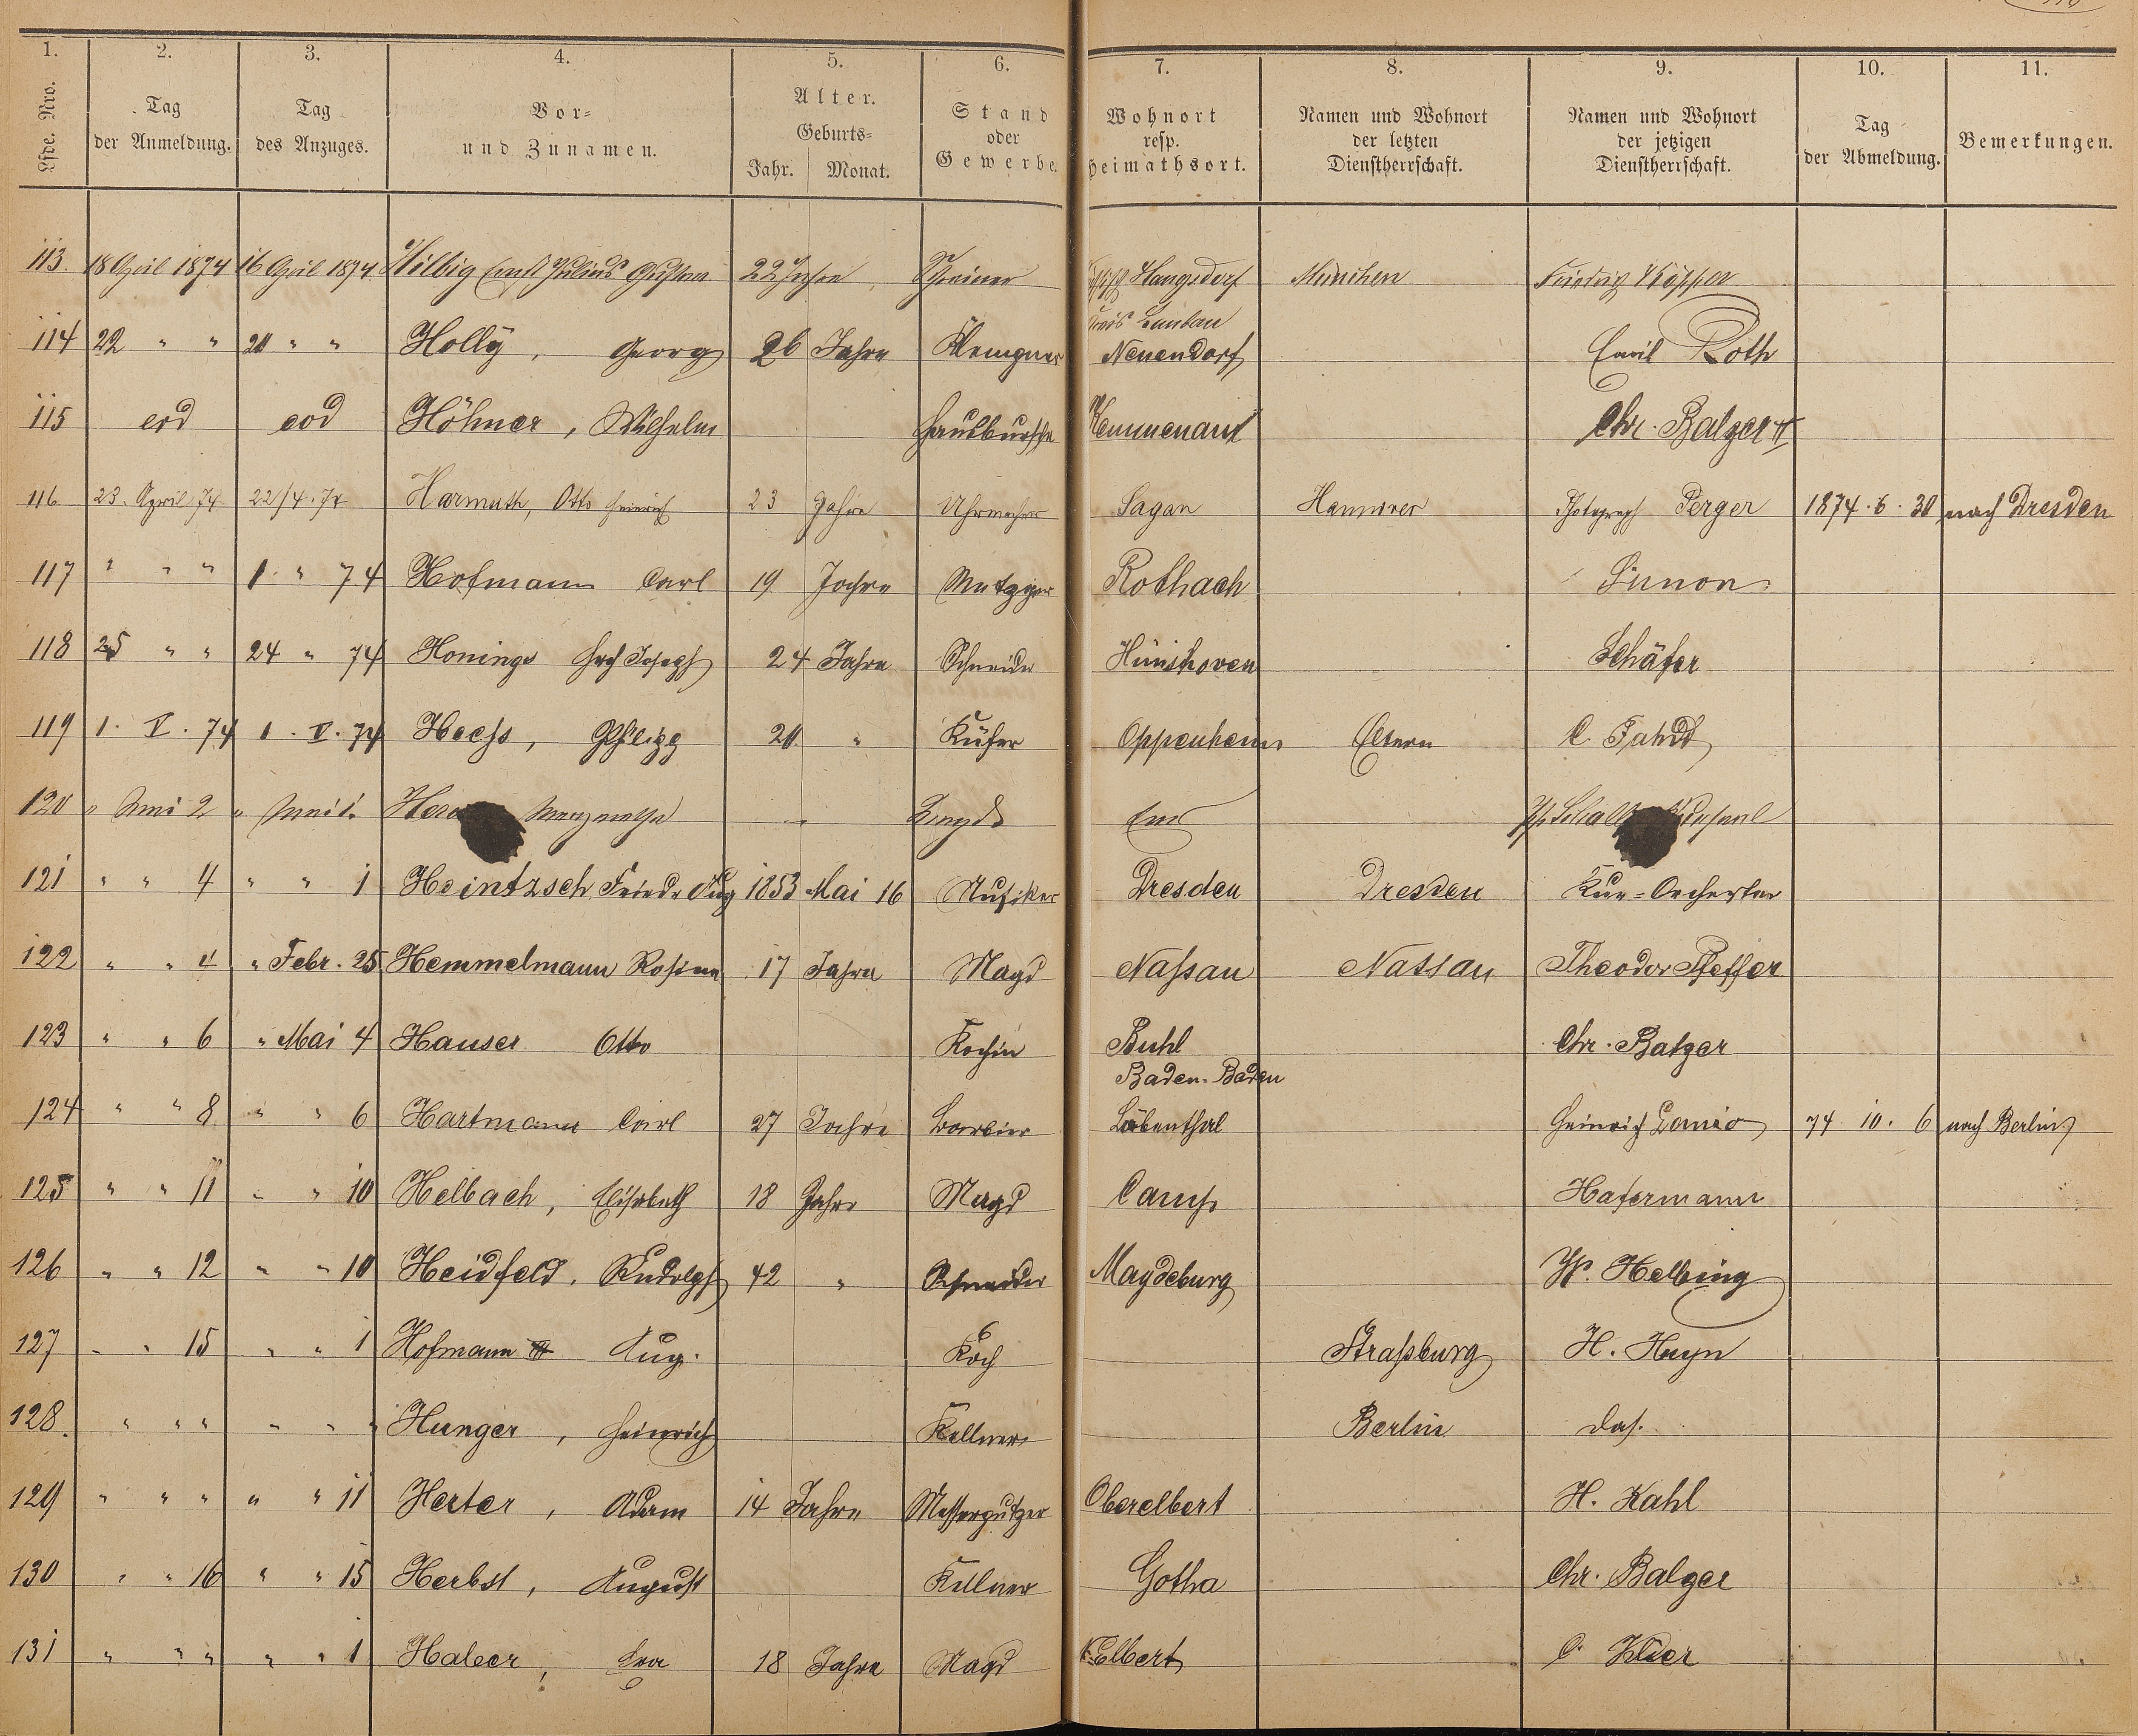 1. 2. 3. 4. 5. 6. 7. 8. 9. 10. 11.
Lfde. Nro. Tag der Anmeldung. Tag des Anzuges. Vor- und Zunamen. Alter. Geburts- Jahr. Monat. Stand oder Gewerbe. Wohnort resp. Heimathsort. Namen und Wohnort der letzten Dienstherrschaft. Namen und Wohnort der jetzigen Dienstherrschaft. Tag der Abmeldung. Bemerkungen.
113. 18 April 1874 16 April 1874 Hilbig Ernst Julius Gustav 22 Jahre Schreiner Hangsdorf München Friedrich
Kreis Lauban
114 22 " " 20 " " Holly, Georg 26 Jahre Klempner Neuendorf Emil Roth
115 eod eod Höhner, Wilhelm Hausbursche Kemmenau Chr. Balzer II
116 23. April 74 22/4.74 Harmuth, Otto Heinrich 23 Jahre Uhrmacher Sagan Hannover Photograph Perger 1874.6.30 nach Dresden
117 " " " 1. " 74 Hofmann Carl 19 Jahre Metzger Rothach Simon
118 25 " " 24 " 74 Honings Joseph 24 Jahre Schneider Hünshoven Schäfer
119 1. V. 74 1. V. 74 Heess, Philipp 20 " Küfer Oppenheim Eltern C.
120 " Mai 2 " Mai 1. — Ems
121 " " 4 " " 1 Heintzsch Friedr Aug 1853 Mai 16 Musiker Dresden Dresden Kur-Orchester
122 " " 4 " Febr. 25 Hemmelmann Rosina 17 Jahre Magd Nassau Nassau Theodor Pfeffer
123 " " 6 " Mai 4 Hauser Otto Kochin Buhl Chr. Balzer
Baden-Baden
124 " " 8 " " 6 Hartmann Carl 27 Jahre Barbier Löbenthal Heinrich 74 10. 6 nach Berlin
125 " " 11 " " 10 Helbach, Elisabeth 18 Jahre Magd Camp Hafermann
126 " " 12 " " 10 Heidfeld, Rudolph 42 " Schneider Magdeburg W. Helbing
127 " " 15 " " 1 Hofmann Aug. Koch Strassburg H. Heyn
128. " " " " " " Hunger, Heinrich Kellner Berlin das.
129 " " " " " 11 Herter, Adam 14 Jahre Messerputzer Oberelbert H. Kahl
130 " " 16 " " 15 Herbst, August Kellner Gotha Chr. Balzer
131 " " " " " 1 Haber, Eva 18 Jahre Magd Elbert